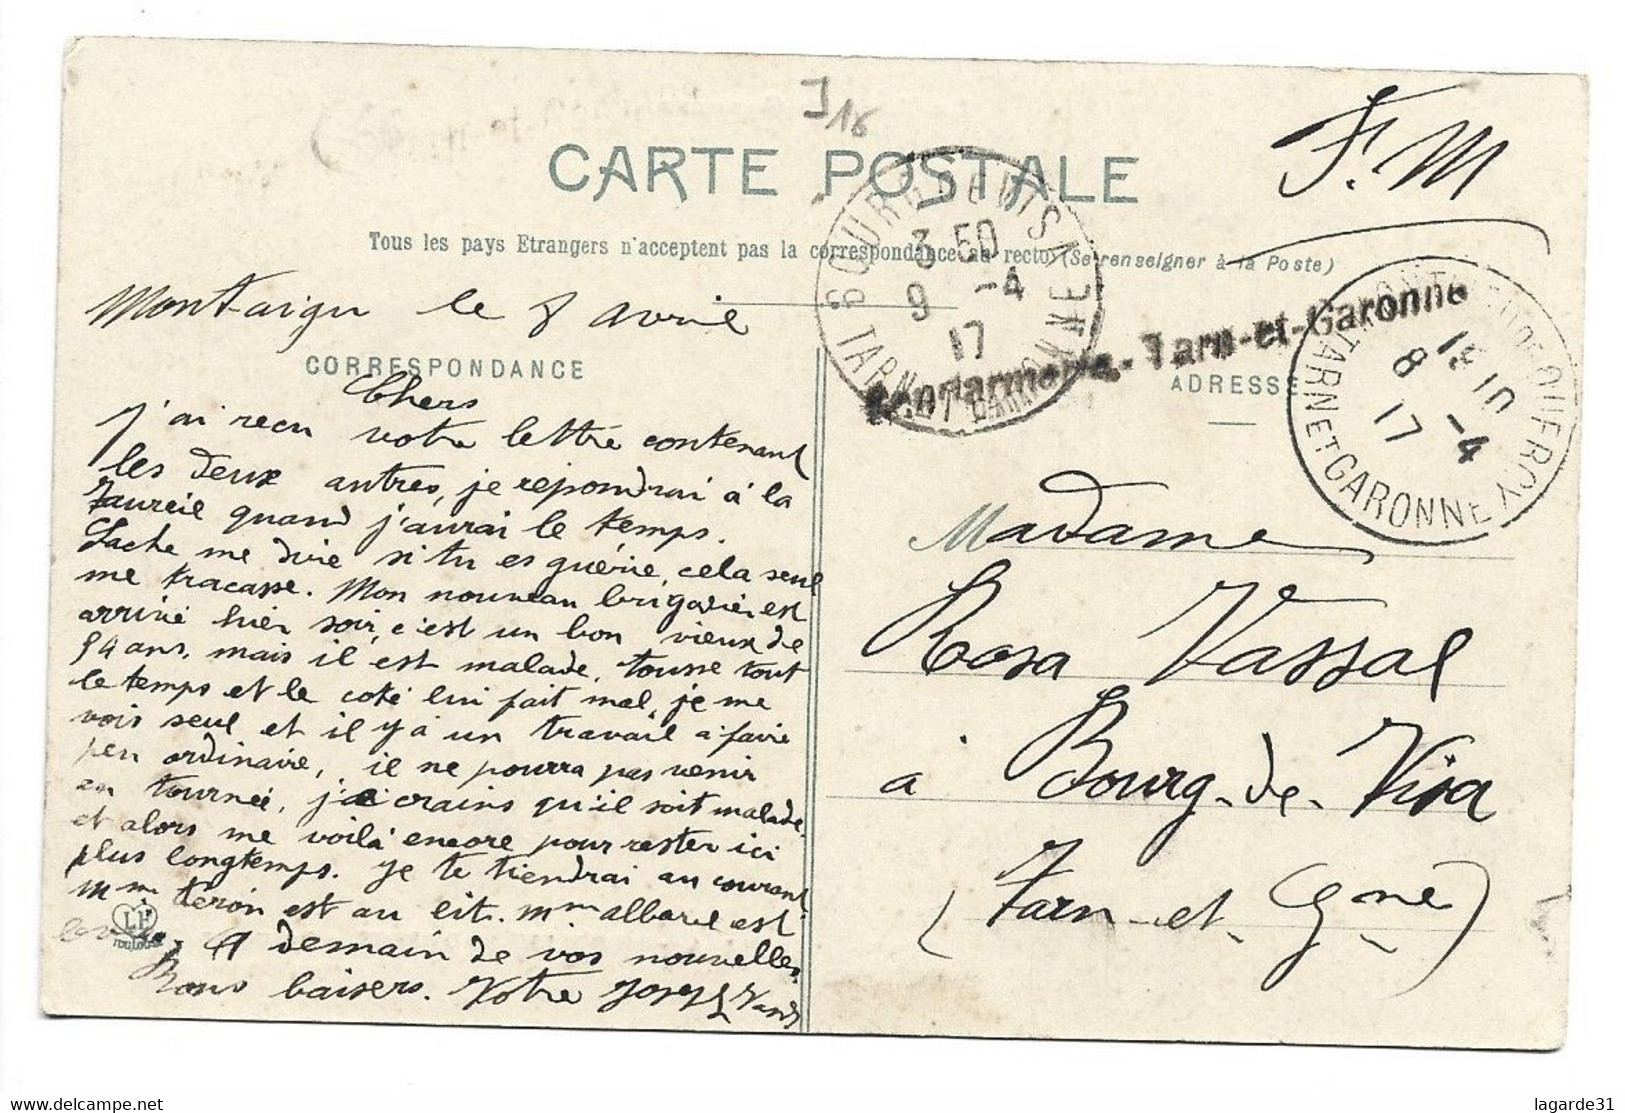 J 16
F. M
CARTE POSTALE
Tous les pays Etrangers n'acceptent pas la correspondance au recto (Se renseigner à la Poste)
BOURG DE VISA
3 50
9 -4
17
TARN ET GARONNE
Gendarmerie.- Tarn-et-Garonne
MONTAIGU DE QUERCY
15 10
8 -4
17
TARN ET GARONNE
Montaigu le 8 avril
CORRESPONDANCE
Chers
j'ai reçu votre lettre contenant
les deux autres, je repondrai à la
quand j'aurai le temps.
Tache me dire si tu es guérie, cela seul
me tracasse. Mon nouveau brigadier est
arrivé hier soir, c'est un bon vieux de
54 ans, mais il est malade, tousse tout
le temps et le coté lui fait mal, je me
vois seul et il y a un travail à faire
peu ordinaire, il ne pourra pas venir
en tournée, je crains qu'il soit malade
et alors me voilà encore pour rester ici
plus longtemps. je te tiendrai au courant
Mme téron est au lit. Mme albarel est
A demain de vos nouvelles
Bons baisers. Votre Joseph
LF
Toulouse
ADRESSE
Madame
Rosa Vassal
à Bourg-de-Visa
(Tarn-et-Gne)
Delcampe.net
lagarde31